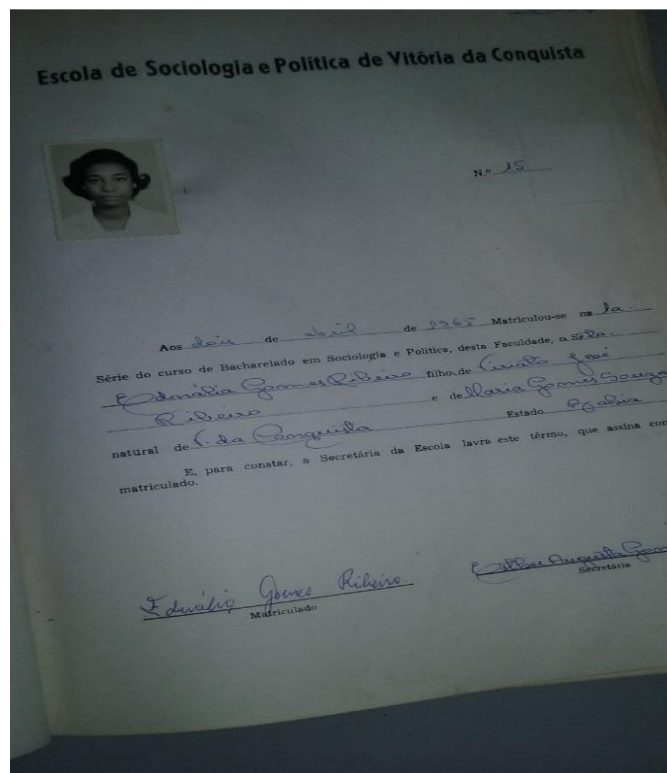 Escola de Sociologia e Política de Vitória da Conquista
N.º 15
Aos dois de abril de 1965 Matriculou-se na 1a.
Série do curso de Bacharelado em Sociologia e Política, desta Faculdade, a Srta.
Edvália Gomes Ribeiro filho de José
Ribeiro e de Maria Gomes Souza
natural de V. da Conquista Estado Bahia
E, para constar, a Secretária da Escola lavra este têrmo, que assina com
matriculado.
Edvália Gomes Ribeiro
Matriculado
Esther Augusta
Secretária